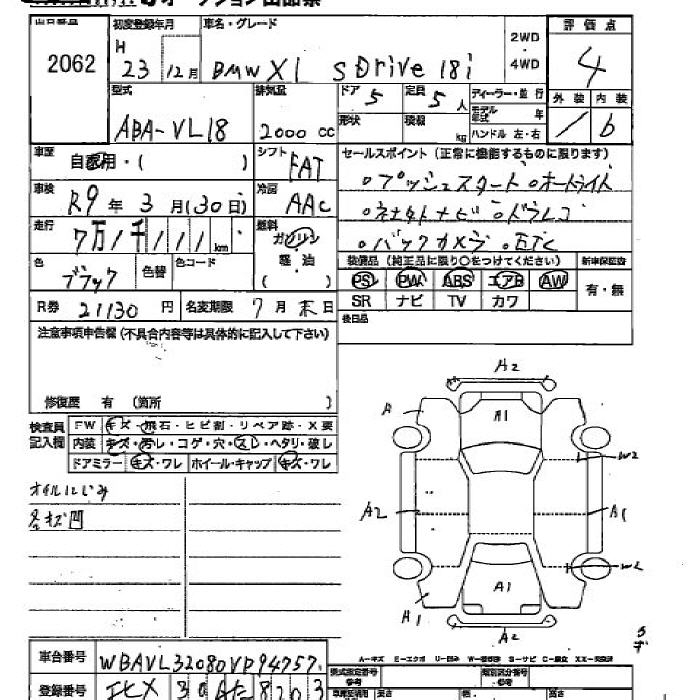 出品番号 初度登録年月 車名・グレード 評価点
2062 H 23 12月 BMW X1 sDrive 18i 2WD ・ 4WD 4
型式 排気量 ドア 5 定員 5人 ディーラー・並行 外装 内装
ABA-VL18 2000 cc 形状 積載 kg モデル年式 年 ハンドル 左・右 / b
車歴 自家用・( ) シフト FAT セールスポイント(正常に機能するものに限ります)
車検 R9年 3月(30日) 冷房 AAC ○プッシュスタート ○オートライト
走行 7万1千111km 燃料 ガソリン 軽油 ( )
○バックカメラ ○ETC
色 ブラック 色替 色コード 装備品(純正品に限り○をつけてください) 新車保証書
PS PW ABS エアB AW 有・無
R券 21130円 名変期限 7月末日 SR ナビ TV カワ
注意事項申告欄(不具合内容等は具体的に記入して下さい) 後日品
修復歴 有 (箇所 )
検査員記入欄 FW キズ・飛石・ヒビ割・リペア跡・X要
内装 キズ・汚レ・コゲ・穴・スレ・ヘタリ・破レ
ドアミラー キズ・ワレ ホイール・キャップ キズ・ワレ
オイルにじみ
各キズ凹
A2
A A1
W2
A2 A1
W2
A1
H1 A2
A-キズ E-エクボ U-凹み
車台番号 WBAVL32080VP94757
登録番号
型式指定番号 類別区分番号
参考 参考